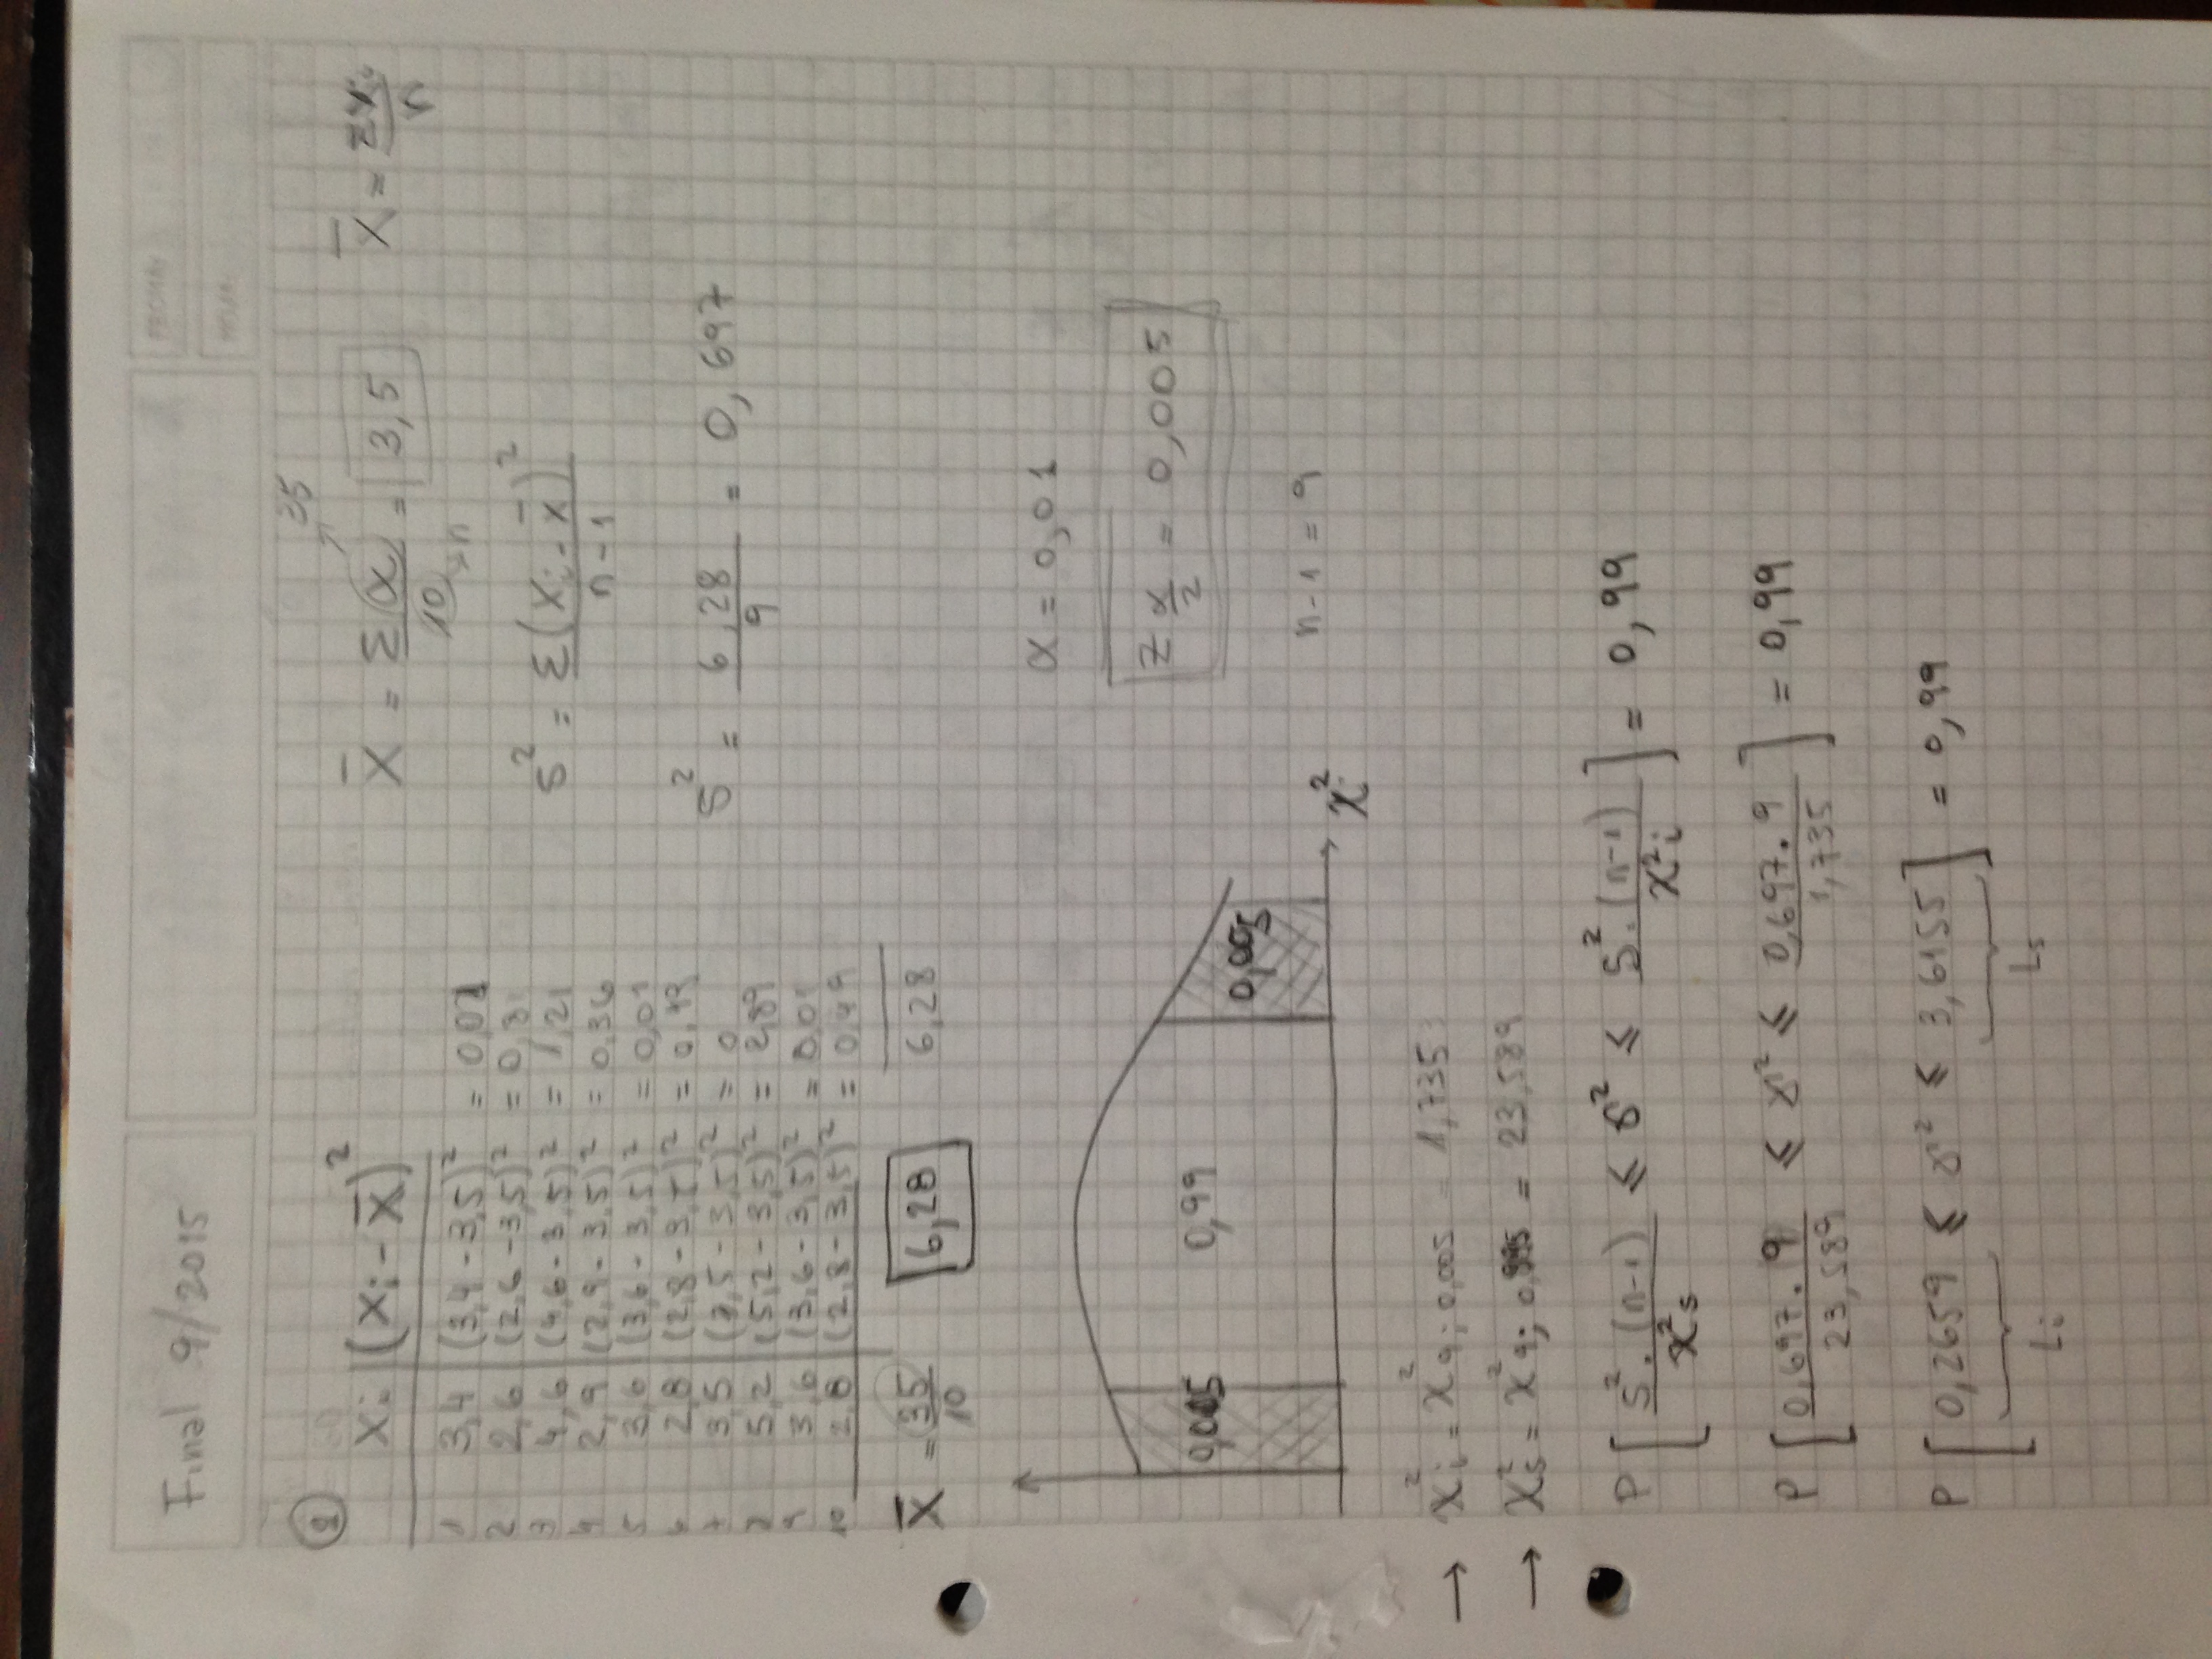 Final 9/2015
FECHA:
HOJA:
xi | (xi - x̄)²
x̄ = Σα/10 = 3,5
35
n
x̄ = Σxi/n
1 3,4 (3,4 - 3,5)² = 0,01
2 2,6 (2,6 - 3,5)² = 0,81
3 4,6 (4,6 - 3,5)² = 1,21
4 2,9 (2,9 - 3,5)² = 0,36
5 3,6 (3,6 - 3,5)² = 0,01
6 2,8 (2,8 - 3,5)² = 0,49
7 3,5 (3,5 - 3,5)² = 0
5,2 (5,2 - 3,5)² = 2,89
9 3,6 (3,6 - 3,5)² = 0,01
10 2,8 (2,8 - 3,5)² = 0,49
x̄ = 35/10 6,28 6,28
S² = Σ(xi - x̄)²/n-1
S² = 6,28/9 = 0,697
0,005 0,99 0,005
χ²
α = 0,01
Z α/2 = 0,005
n-1 = 9
→ χ²i = χ² 9; 0,005 = 1,735
→ χ²s = χ² 9; 0,995 = 23,589
P [ S².(n-1)/χ²s ≤ σ² ≤ S².(n-1)/χ²i ] = 0,99
P [ 0,697.9/23,589 ≤ σ² ≤ 0,697.9/1,735 ] = 0,99
P [ 0,2659 ≤ σ² ≤ 3,6155 ] = 0,99
Li Ls